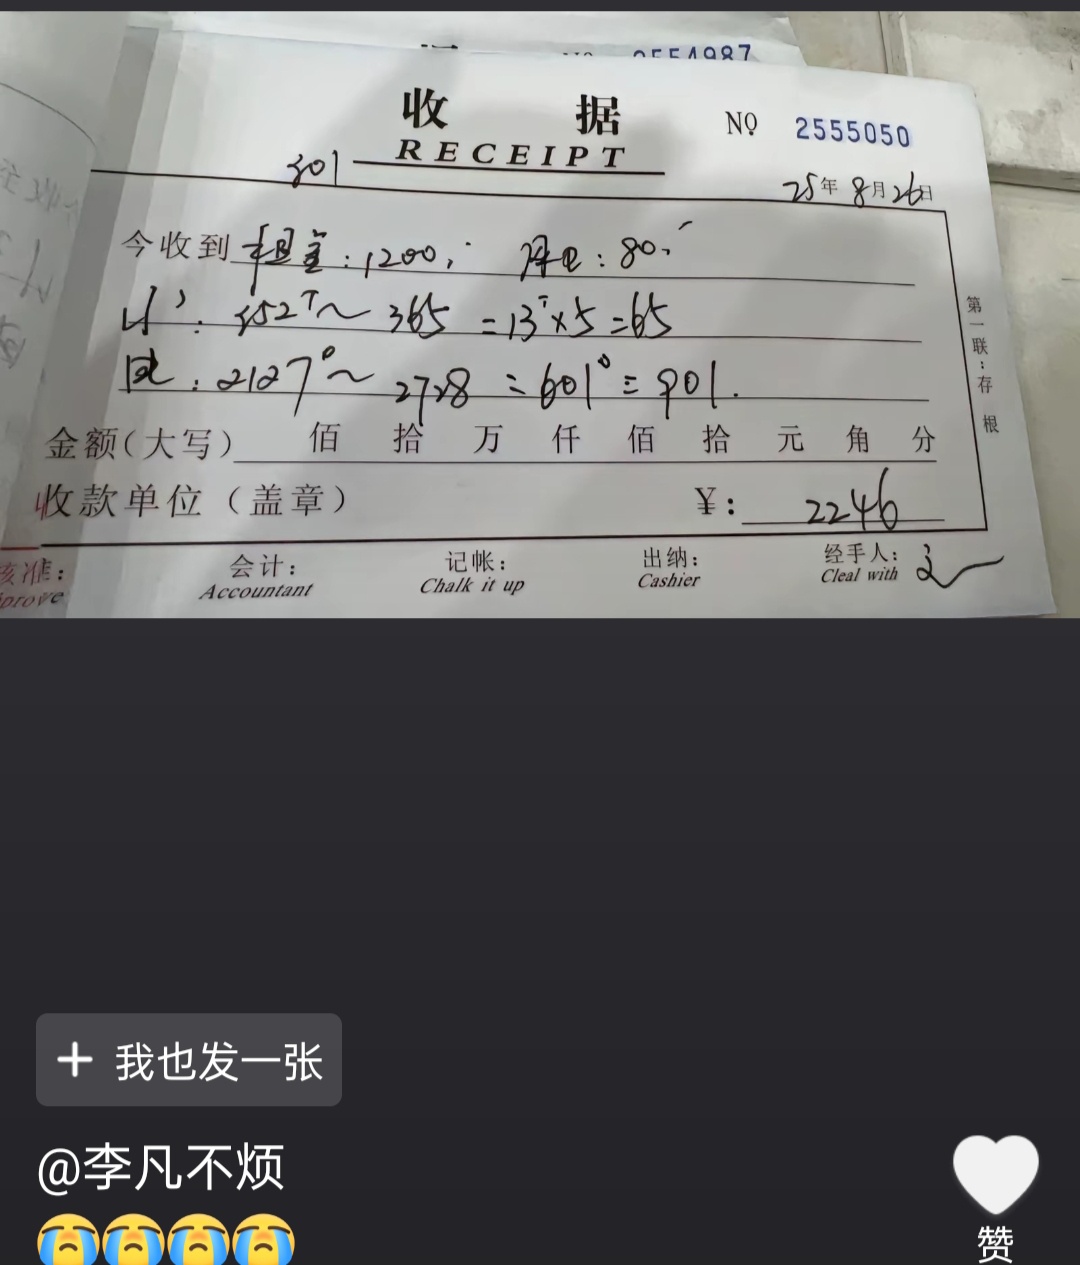 2554987
收据
NO 2555050
RECEIPT
301
25年8月26日
今收到 租金:1200,
:80,
水:352T~365=13T×5=65
电:2127°~2728=601°=901.
金额(大写) 佰 拾 万 仟 佰 拾 元 角 分
收款单位(盖章) ¥: 2246
第一联:存根
核准: 会计: 记帐: 出纳: 经手人:
Accountant Chalk it up Cashier Cleal with
+ 我也发一张
@李凡不烦
😭😭😭😭
赞